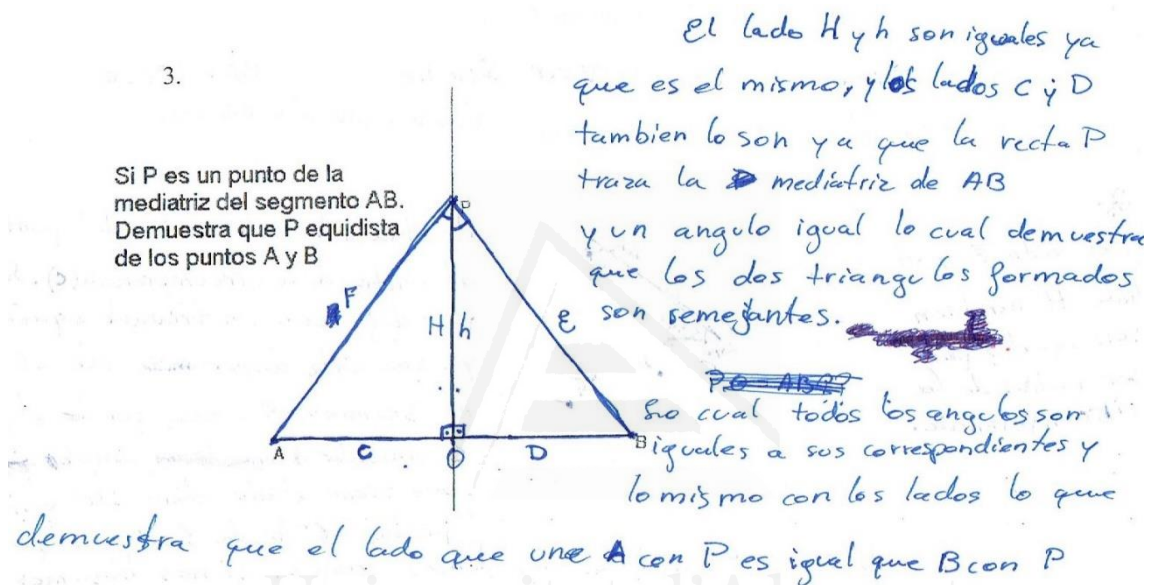 3.
Si P es un punto de la
mediatriz del segmento AB.
Demuestra que P equidista
de los puntos A y B
El lado H y h son iguales ya
que es el mismo, y los lados C y D
tambien lo son ya que la recta P
traza la mediatriz de AB
y un angulo igual lo cual demuestra
que los dos triangulos formados
son semejantes.
lo cual todos los angulos son
iguales a sus correspondientes y
lo mismo con los lados lo que
demuestra que el lado que une A con P es igual que B con P
P
F
H h
E
A C O D B